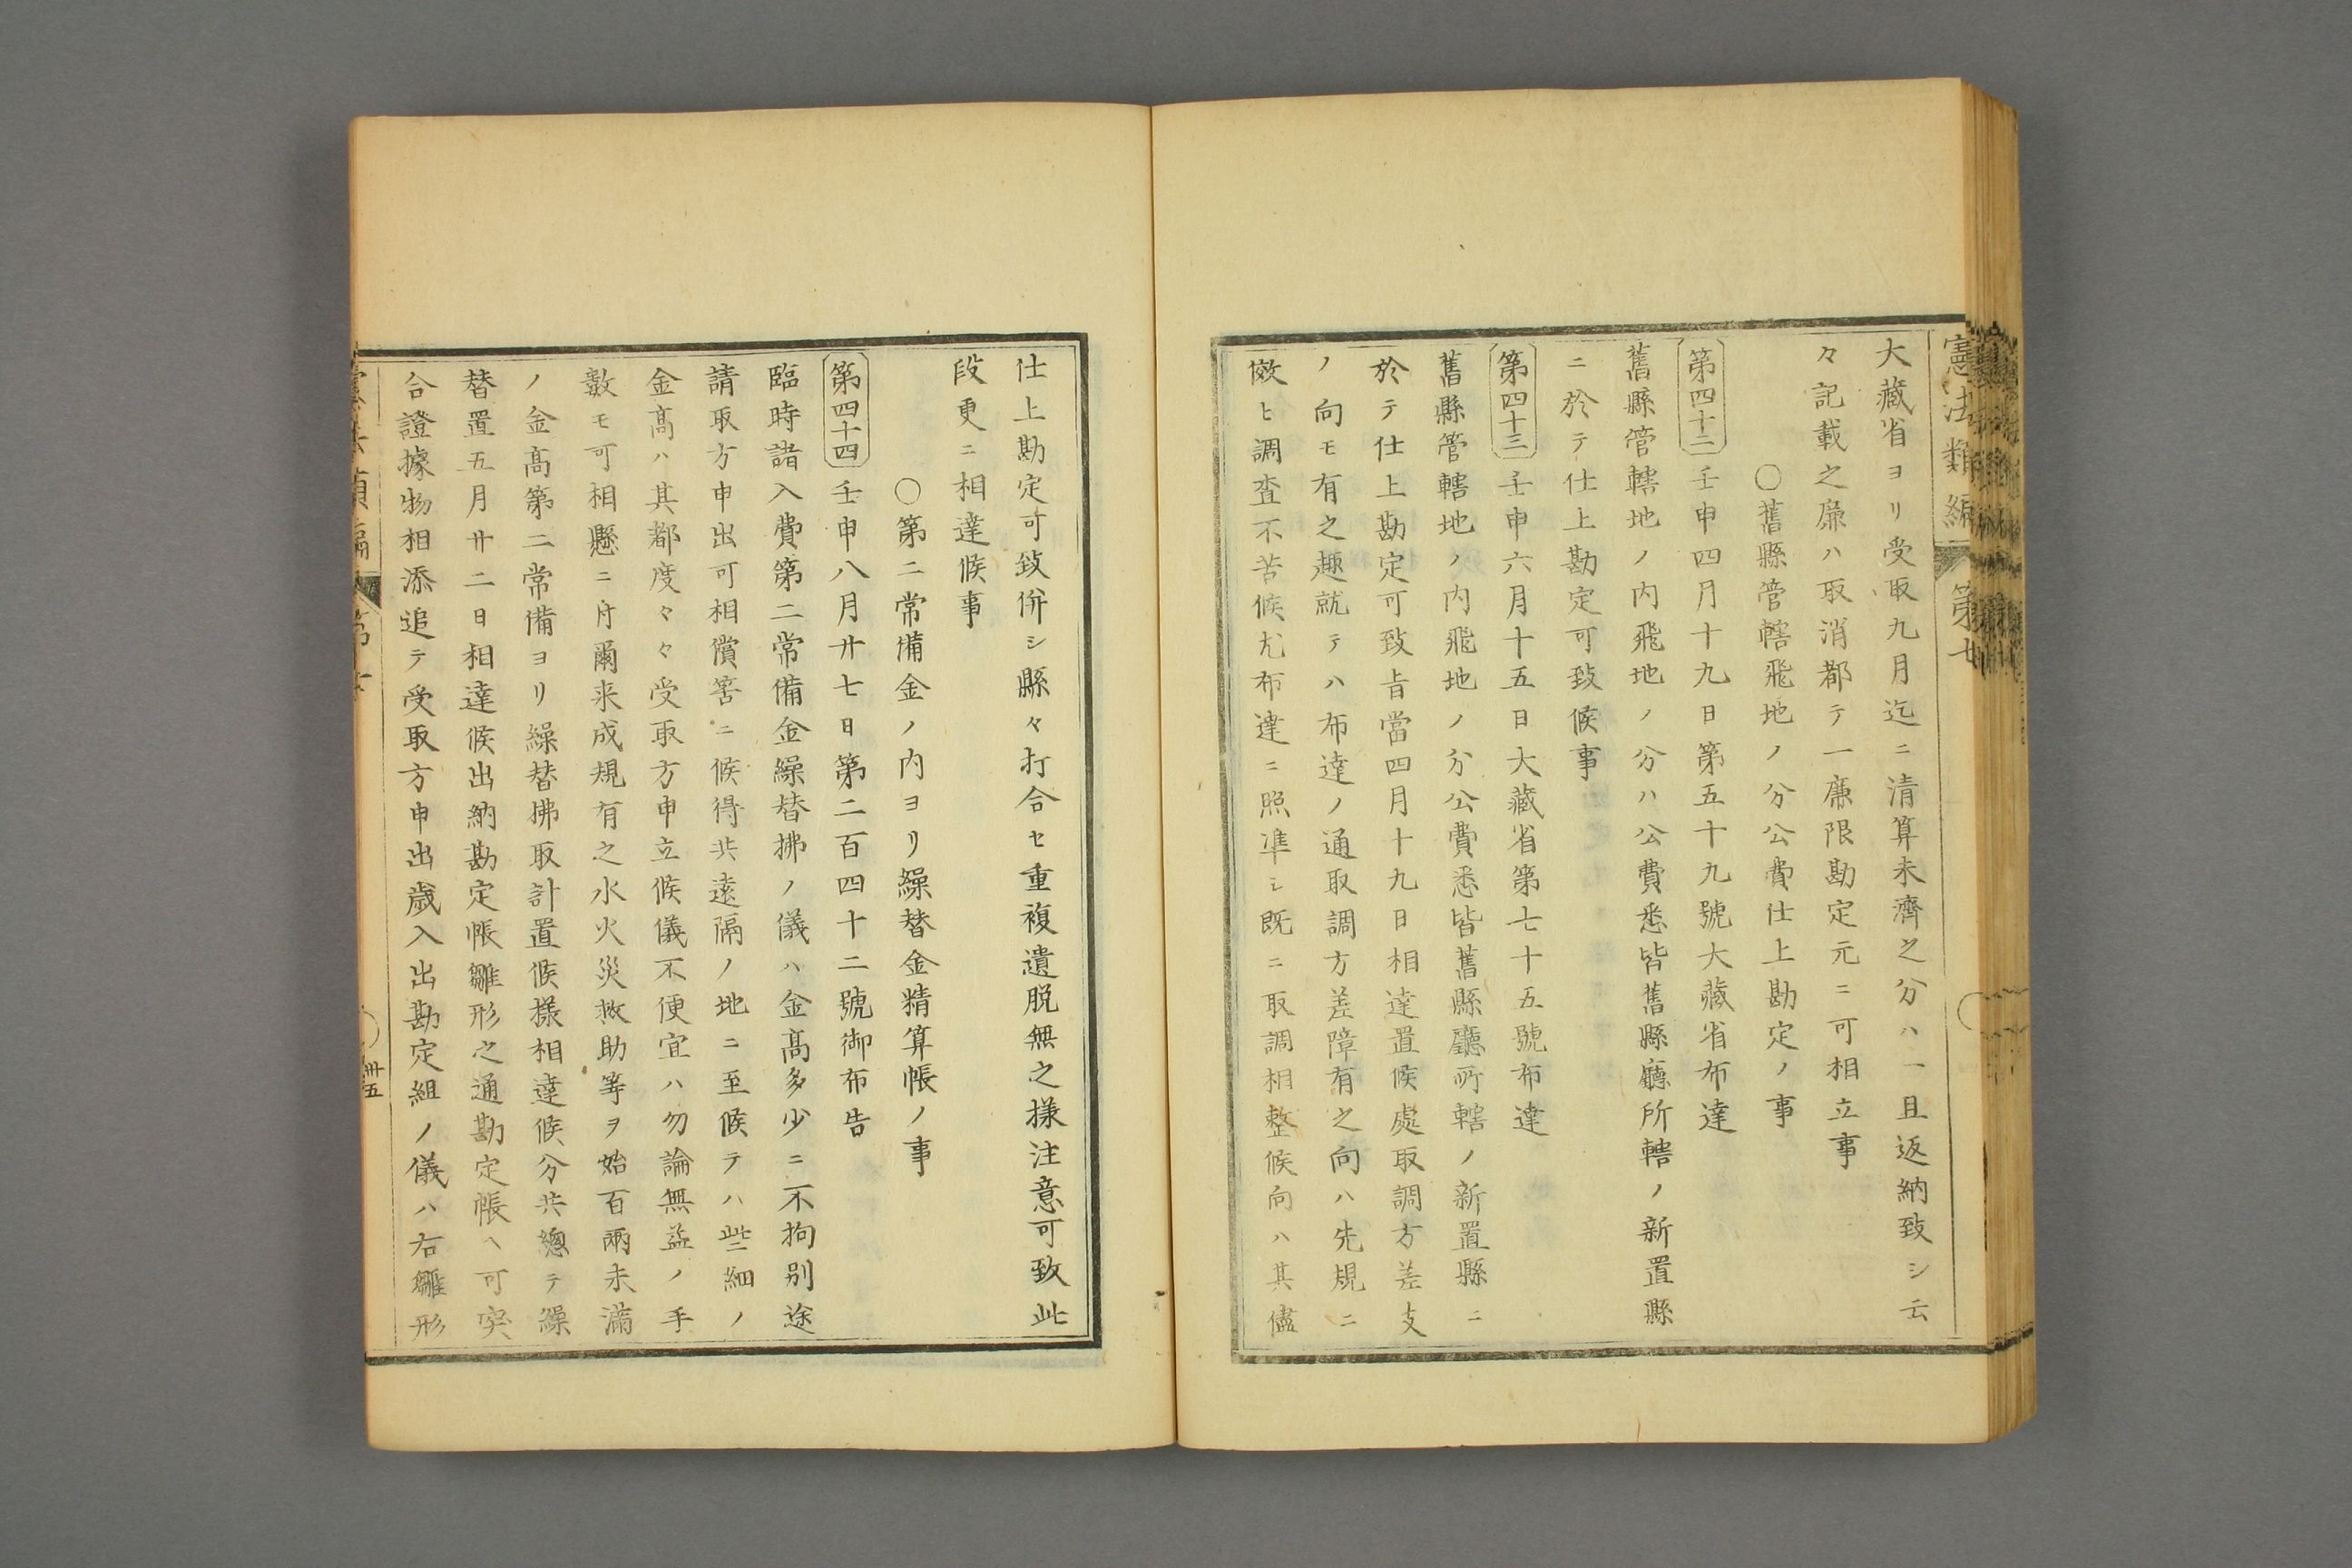 憲法類編 第七
大藏省ヨリ受取九月迄ニ清算未濟之分ハ一且返納致シ云
々記載之廉ハ取消都テ一廉限勘定元ニ可相立事
〇舊縣管轄飛地ノ分公費仕上勘定ノ事
第四十二 壬申四月十九日第五十九號大藏省布達
舊縣管轄地ノ内飛地ノ分ハ公費悉皆舊縣廳所轄ノ新置縣
ニ於テ仕上勘定可致候事
第四十三 壬申六月十五日大藏省第七十五號布達
舊縣管轄地ノ内飛地ノ分公費悉皆舊縣廳所轄ノ新置縣ニ
於テ仕上勘定可致旨當四月十九日相達置候處取調方差支
ノ向モ有之趣就テハ布達ノ通取調方差障有之向ハ先規ニ
傚ヒ調査不苦候尤布達ニ照準シ既ニ取調相整候向ハ其儘
仕上勘定可致併シ縣々打合セ重複遺脱無之様注意可致此
段更ニ相達候事
〇第二常備金ノ内ヨリ繰替金精算帳ノ事
第四十四 壬申八月廿七日第二百四十二號御布告
臨時諸入費第二常備金繰替拂ノ儀ハ金高多少ニ不拘別途
請取方申出可相償筈ニ候得共遠隔ノ地ニ至候テハ些細ノ
金高ハ其都度々々受取方申立候儀不便宜ハ勿論無益ノ手
數モ可相懸ニ付爾来成規有之水火災救助等ヲ始百兩未滿
ノ金高第二常備ヨリ繰替拂取計置候様相達候分共總テ繰
替置五月廿二日相達候出納勘定帳雛形之通勘定帳ヘ可突
合證據物相添追テ受取方申出歲入出勘定組ノ儀ハ右雛形
〇卅五